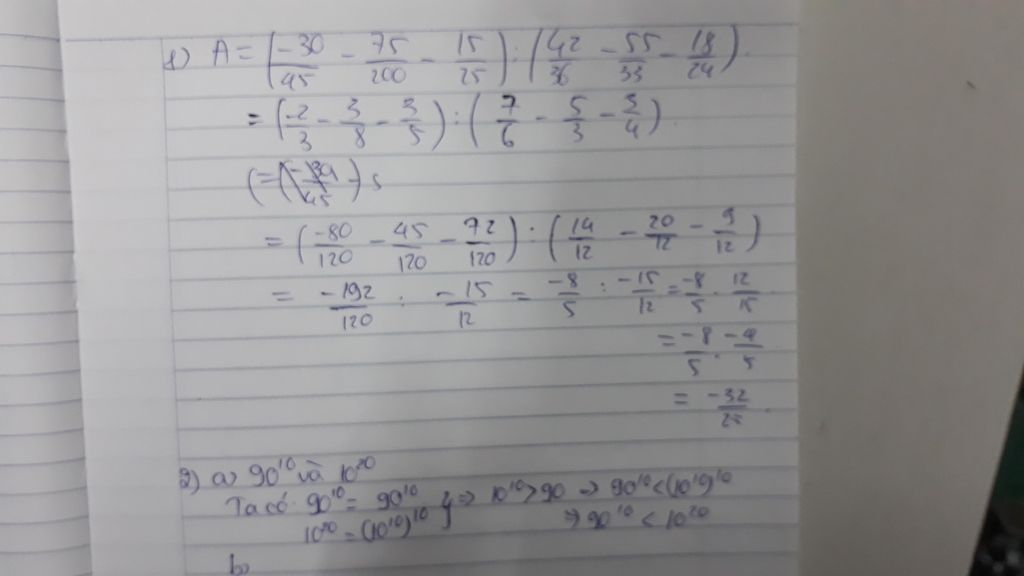 1) A = (-30/45 - 75/200 - 15/25) : (42/36 - 55/33 - 18/24)
= (-2/3 - 3/8 - 3/5) : (7/6 - 5/3 - 3/4)
= (-80/120 - 45/120 - 72/120) : (14/12 - 20/12 - 9/12)
= -192/120 : -15/12 = -8/5 : -15/12 = -8/5 . 12/15
= -8/5 . -4/5
= -32/25
2) a) 90^10 và 10^20
Ta có: 90^10 = 90^10 } => 10^10 > 90 => 90^10 < (10^10)^10
10^20 = (10^10)^10 => 90^10 < 10^20
b)